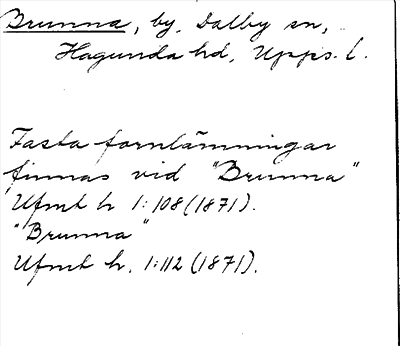 Brunna, by, Dalby sn,
Hagunda hd, Upps. l.
Fasta fornlämningar
finnas vid "Brunna"
Ufmt h 1:108 (1871).
"Brunna"
Ufmt h. 1:112 (1871).